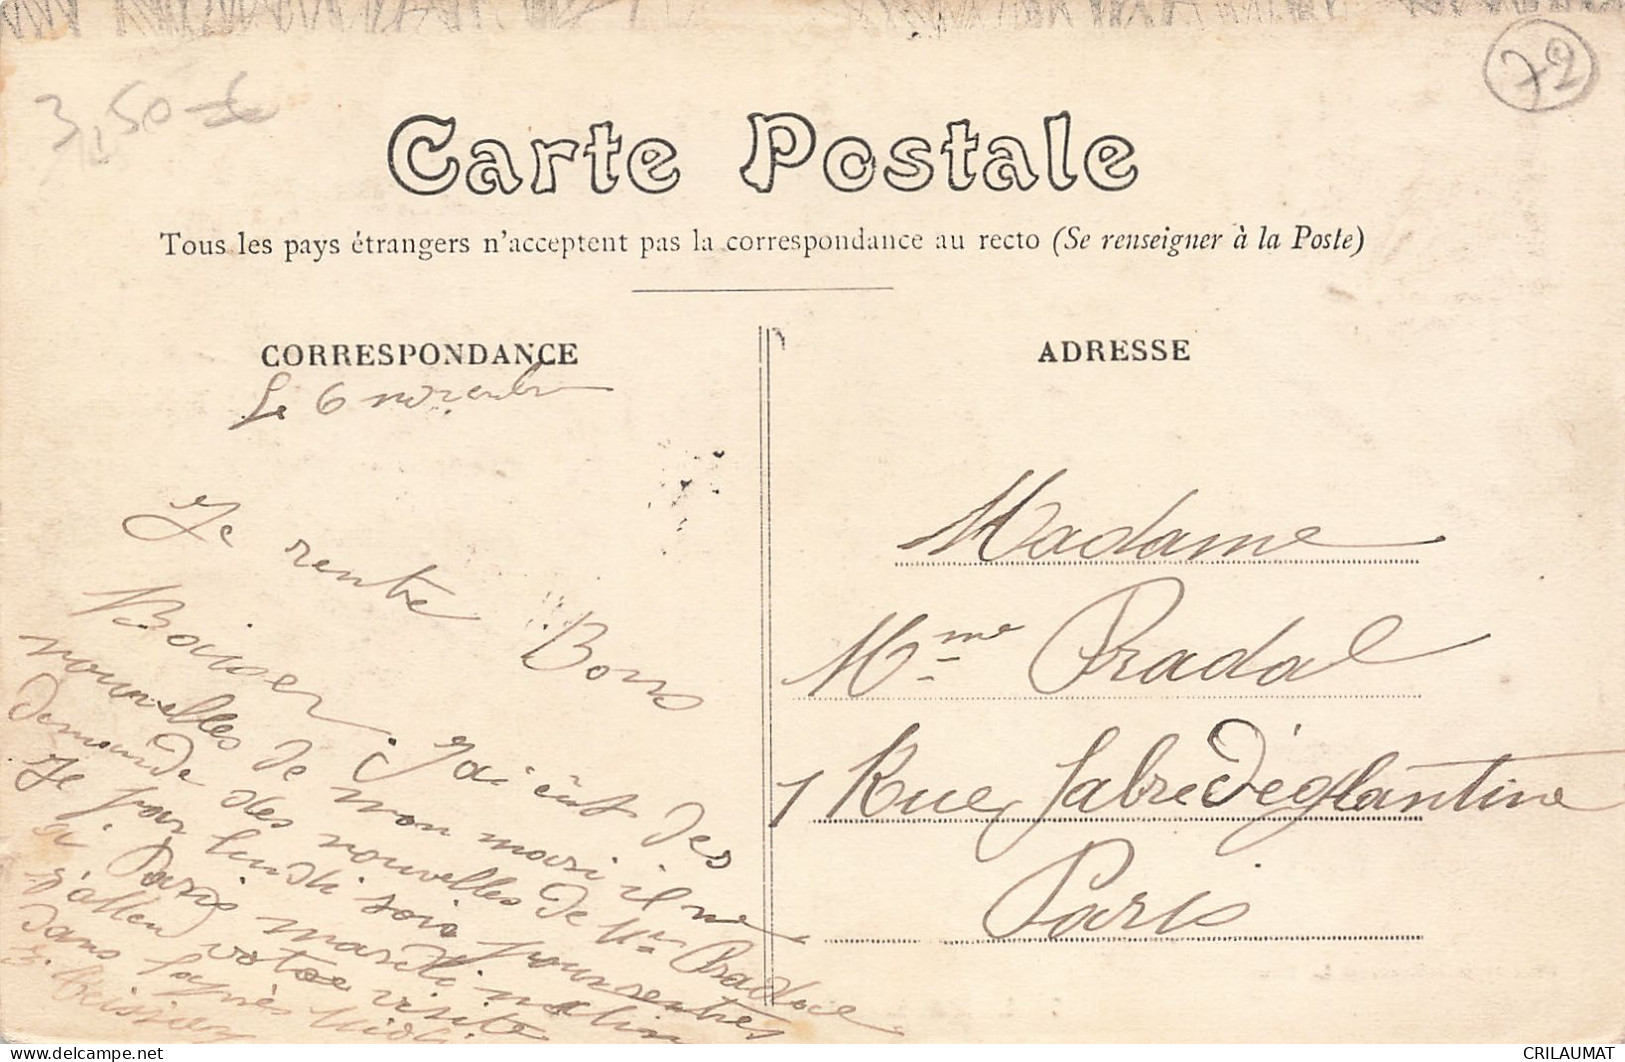 3,50 €
72
Carte Postale
Tous les pays étrangers n'acceptent pas la correspondance au recto (Se renseigner à la Poste)
CORRESPONDANCE
Le 6 novembre
Je rentre Bons
Baiser. J'ai eût des
nouvelles de mon mari il me
demande des nouvelles de Mr Pradal
Je par lundi soir pour rentrer
a Paris mardi matin
j'allen votre visite
dans l'après midi
ADRESSE
Madame
Mme Pradal
1 Rue Fabre D'églantine
Paris
CRILAUMAT